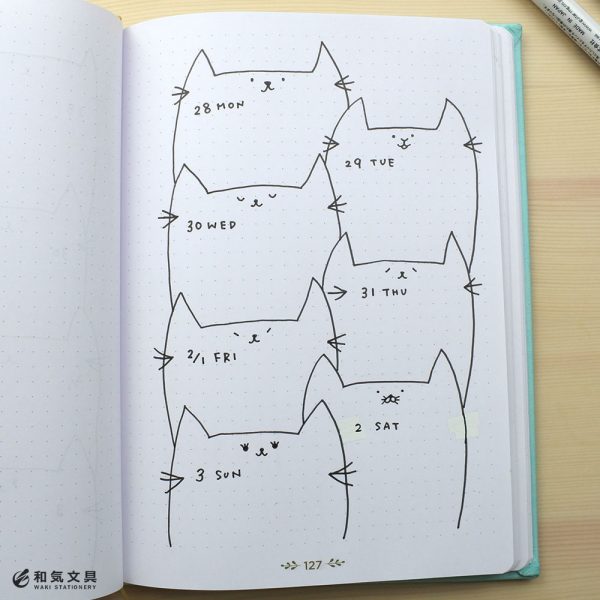 28 MON
29 TUE
30 WED
31 THU
2/1 FRI
2 SAT
3 SUN
127
和気文具
WAKI STATIONERY
MADE IN JAPAN